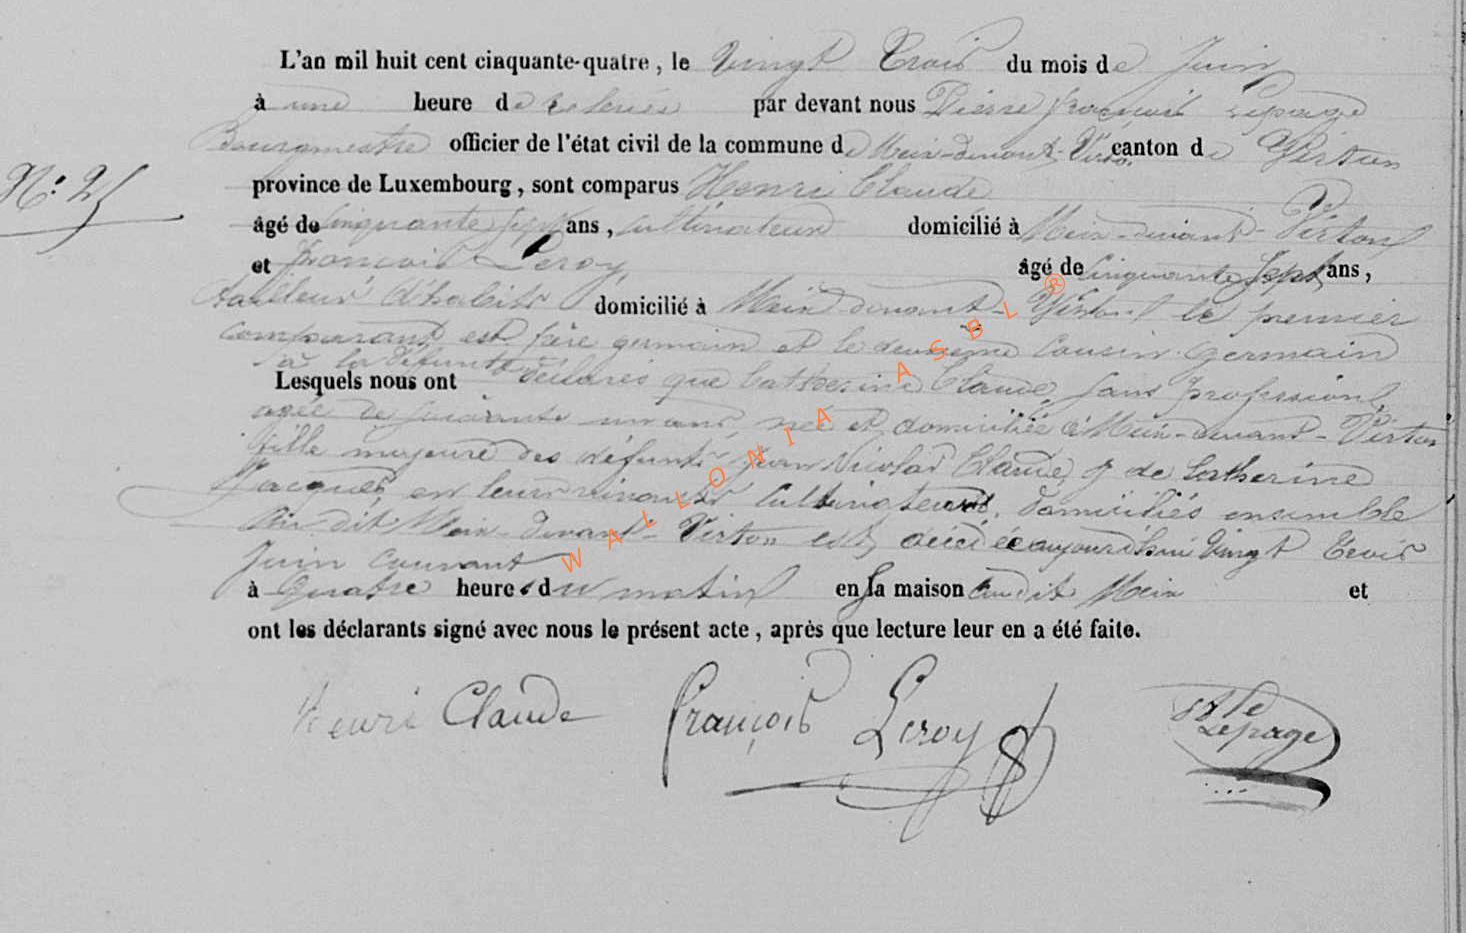 L'an mil huit cent cinquante-quatre, le vingt trois du mois de Juin
à une heure de relevée par devant nous Pierre françois Lepage
Bourgmestre officier de l'état civil de la commune de Meix-devant-Virton canton de Virton
N° 25
province de Luxembourg, sont comparus Henri Claude
âgé de cinquante sept ans, cultivateur domicilié à Meix-devant-Virton
et françois Leroy, âgé de cinquante sept ans,
tailleur d'habits domicilié à Meix devant-Virton le premier
comparant est frère germain et le deuxième cousin germain
à la défunte
Lesquels nous ont déclarés que Catherine Claude, sans profession,
agée de soixante un ans, née et domiciliée à Meix-devant-Virton
fille majeure des défunts Jean Nicolas Claude & de Catherine
Jacques, en leurs vivants cultivateurs, domiciliés ensemble
au dit Meix-devant-Virton est décédée aujourd'hui vingt trois
Juin courant
à quatre heures du matin en sa maison audit Meix et
ont les déclarants signé avec nous le présent acte, après que lecture leur en a été faite.
Henri Claude françois Leroy Lepage
WALLONIA ASBL ®